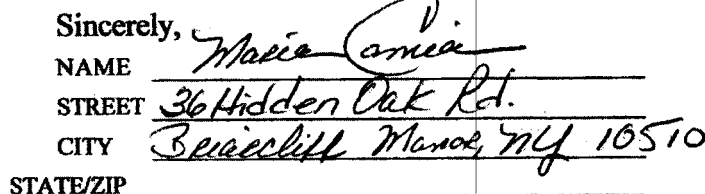 Sincerely,
NAME Maria
STREET 36 Hidden Oak Rd.
CITY Briarcliff Manor, NY 10510
STATE/ZIP